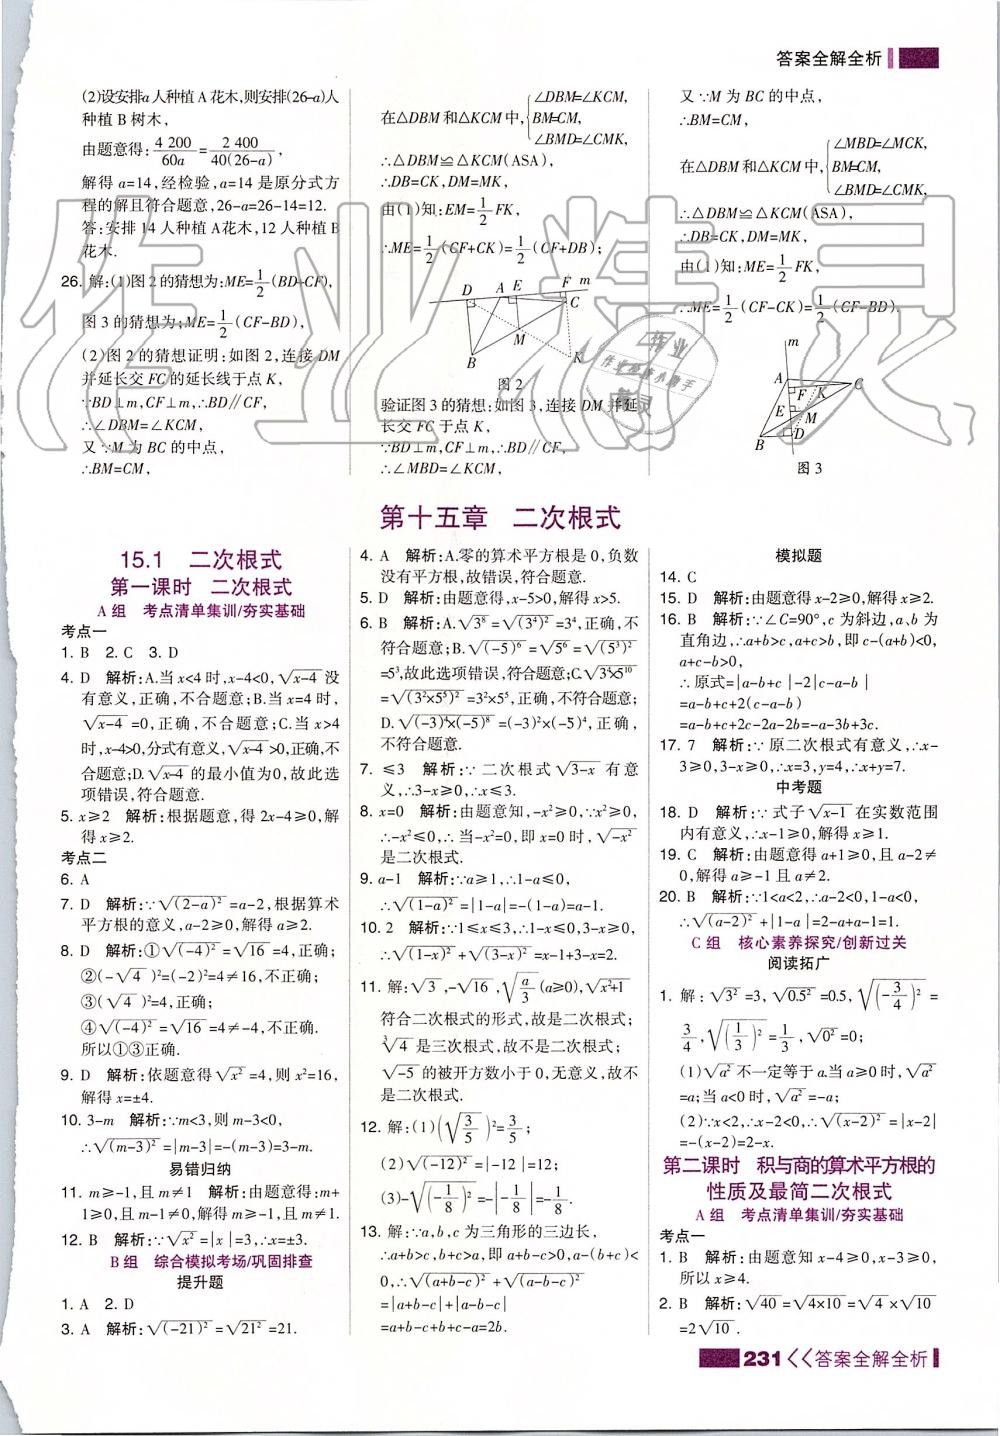 答案全解全析
(2)设安排a人种植A花木,则安排(26-a)人
种植B树木,
由题意得:4 200/60a=2 400/40(26-a),
解得a=14,经检验,a=14是原分式方
程的解且符合题意,26-a=26-14=12.
答:安排14人种植A花木,12人种植B
花木.
26. 解:(1)图2的猜想为:ME=1/2(BD-CF),
图3的猜想为:ME=1/2(CF-BD),
(2)图2的猜想证明:如图2,连接DM
并延长交FC的延长线于点K,
∵BD⊥m,CF⊥m,∴BD∥CF,
∴∠DBM=∠KCM,
又∵M为BC的中点,
∴BM=CM,
在△DBM和△KCM中,{∠DBM=∠KCM,
BM=CM,
∠BMD=∠CMK,
∴△DBM≌△KCM(ASA),
∴DB=CK,DM=MK,
由(1)知:EM=1/2FK,
∴ME=1/2(CF+CK)=1/2(CF+DB);
D A E F m
C
M
B K
图2
验证图3的猜想:如图3,连接DM并延
长交CF于点K,
∵BD⊥m,CF⊥m,∴BD∥CF,
∴∠MBD=∠KCM,
又∵M为BC的中点,
∴BM=CM,
在△DBM和△KCM中,{∠MBD=∠MCK,
BM=CM,
∠BMD=∠CMK,
∴△DBM≌△KCM(ASA),
∴DB=CK,DM=MK,
由(1)知:ME=1/2FK,
∴ME=1/2(CF-CK)=1/2(CF-BD).
m
A C
F K
E M
B D
图3
第十五章 二次根式
15.1 二次根式
第一课时 二次根式
A组 考点清单集训/夯实基础
考点一
1. B 2. C 3. D
4. D 解析:A.当x<4时,x-4<0,√(x-4)没
有意义,正确,不合题意;B.当x=4时,
√(x-4)=0,正确,不合题意;C.当x>4
时,x-4>0,分式有意义,√(x-4)>0,正确,不
合题意;D.√(x-4)的最小值为0,故此选
项错误,符合题意.
5. x≥2 解析:根据题意,得2x-4≥0,解
得x≥2.
考点二
6. A
7. D 解析:∵√(2-a)²=a-2,根据算术
平方根的意义,a-2≥0,解得a≥2.
8. D 解析:①√(-4)²=√16=4,正确;
②(-√4)²=(-2)²=4≠16,不正确;
③(√4)²=4,正确;
④√(-4)²=√16=4≠-4,不正确.
所以①③正确.
9. D 解析:依题意得√x²=4,则x²=16,
解得x=±4.
10. 3-m 解析:∵m<3,则m-3<0,
∴√(m-3)²=|m-3|=-(m-3)=3-m.
易错归纳
11. m≥-1,且m≠1 解析:由题意得:m+
1≥0,且m-1≠0,解得m≥-1,且m≠1.
12. B 解析:∵√x²=|x|=3,∴x=±3.
B组 综合模拟考场/巩固排查
提升题
1. A 2. D
3. A 解析:√(-21)²=√21²=21.
4. A 解析:A.零的算术平方根是0,负数
没有平方根,故错误,符合题意.
5. D 解析:由题意得,x-5>0,解得x>5.
6. B 解析:A.√3⁸=√(3⁴)²=3⁴,正确,不
符合题意;B.√(-5)⁶=√5⁶=√(5³)²
=5³,故此选项错误,符合题意;C.√(3⁴×5¹⁰)
=√(3²×5⁵)²=3²×5⁵,正确,不符合题意;
D.√((-3)⁴×(-5)⁸)=(-3)²×(-5)⁴,正确,
不符合题意.
7. ≤3 解析:∵二次根式√(3-x)有意
义,∴3-x≥0,∴x≤3.
8. x=0 解析:由题意知,-x²≥0,∵x²≥0,
∴-x²≤0,∴当-x²=0,即x=0时,√(-x²)
是二次根式.
9. a-1 解析:∵a≥1,∴1-a≤0,
∴√(1-a)²=|1-a|=-(1-a)=a-1.
10. 2 解析:∵1≤x≤3,∴1-x≤0,3-x≥0,
∴√(1-x)²+√(3-x)²=x-1+3-x=2.
11. 解:√3,-√16,√(a/3)(a≥0),√(x²+1)
符合二次根式的形式,故是二次根式;
∛4是三次根式,故不是二次根式;
√-5的被开方数小于0,无意义,故不
是二次根式.
12. 解:(1)(√(3/5))²=3/5;
(2)√(-12)²=|-12|=12;
(3)-√(-1/8)²=-|-1/8|=-1/8.
13. 解:∵a,b,c为三角形的三边长,
∴a+b>c,b+c>a,即a+b-c>0,a-(b+c)<
0,∴√(a+b-c)²+√(a-b-c)²
=|a+b-c|+|a-b-c|
=a+b-c+b+c-a=2b.
模拟题
14. C
15. D 解析:由题意得x-2≥0,解得x≥2.
16. B 解析:∵∠C=90°,c为斜边,a、b为
直角边,∴a+b>c,a+c>b,即c-(a+b)<0,
a+c-b>0,
∴原式=|a-b+c|-2|c-a-b|
=a-b+c+2(c-a-b)
=a-b+c+2c-2a-2b=-a-3b+3c.
17. 7 解析:∵原二次根式有意义,∴x-
3≥0,3-x≥0,∴x=3,y=4,∴x+y=7.
中考题
18. D 解析:∵式子√(x-1)在实数范围
内有意义,∴x-1≥0,解得x≥1.
19. C 解析:由题意得a+1≥0,且a-2≠
0,解得a≥-1且a≠2.
20. B 解析:∵1<a<2,∴a-2<0,1-a<0,
∴√(a-2)²+|1-a|=2-a+a-1=1.
C组 核心素养探究/创新过关
阅读拓广
1. 解:√3²=3,√0.5²=0.5,√(-3/4)²=
3/4,√(1/3)²=1/3,√0²=0;
(1)√a²不一定等于a.当a≥0时,√a²
=a;当a<0时,√a²=-a;
(2)∵x<2,∴x-2<0,∴√(x-2)²=|x-2|
=-(x-2)=2-x.
第二课时 积与商的算术平方根的
性质及最简二次根式
A组 考点清单集训/夯实基础
考点一
1. B 解析:由题意知x-4≥0,x-3≥0,
所以x≥4.
2. B 解析:√40=√(4×10)=√4×√10
=2√10.
231 答案全解全析
作业精灵